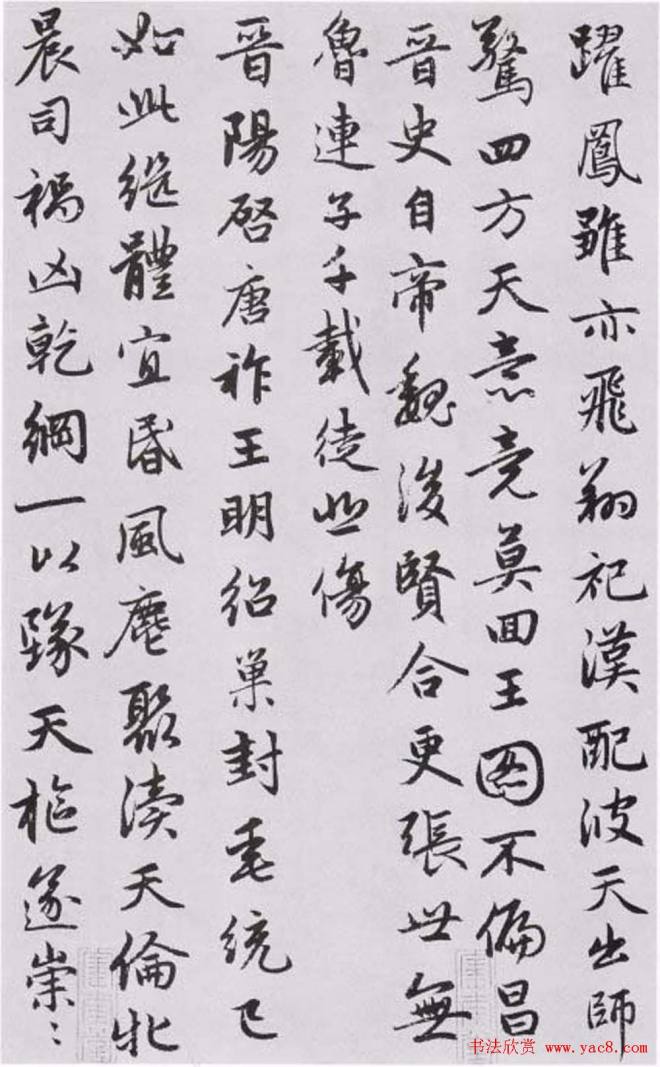 躍鳳雛亦飛翔祀漢配彼天出師
驚四方天意竟莫回王圖不偏昌
晉史自帝魏後賢合更張世無
魯連子千載徒悲傷
晉陽啓唐祚王明紹巢封垂統已
如此繼體宜昏風麀聚瀆天倫牝
晨司禍凶乾綱一以墜天樞遂崇〻
书法欣赏 www.yac8.com